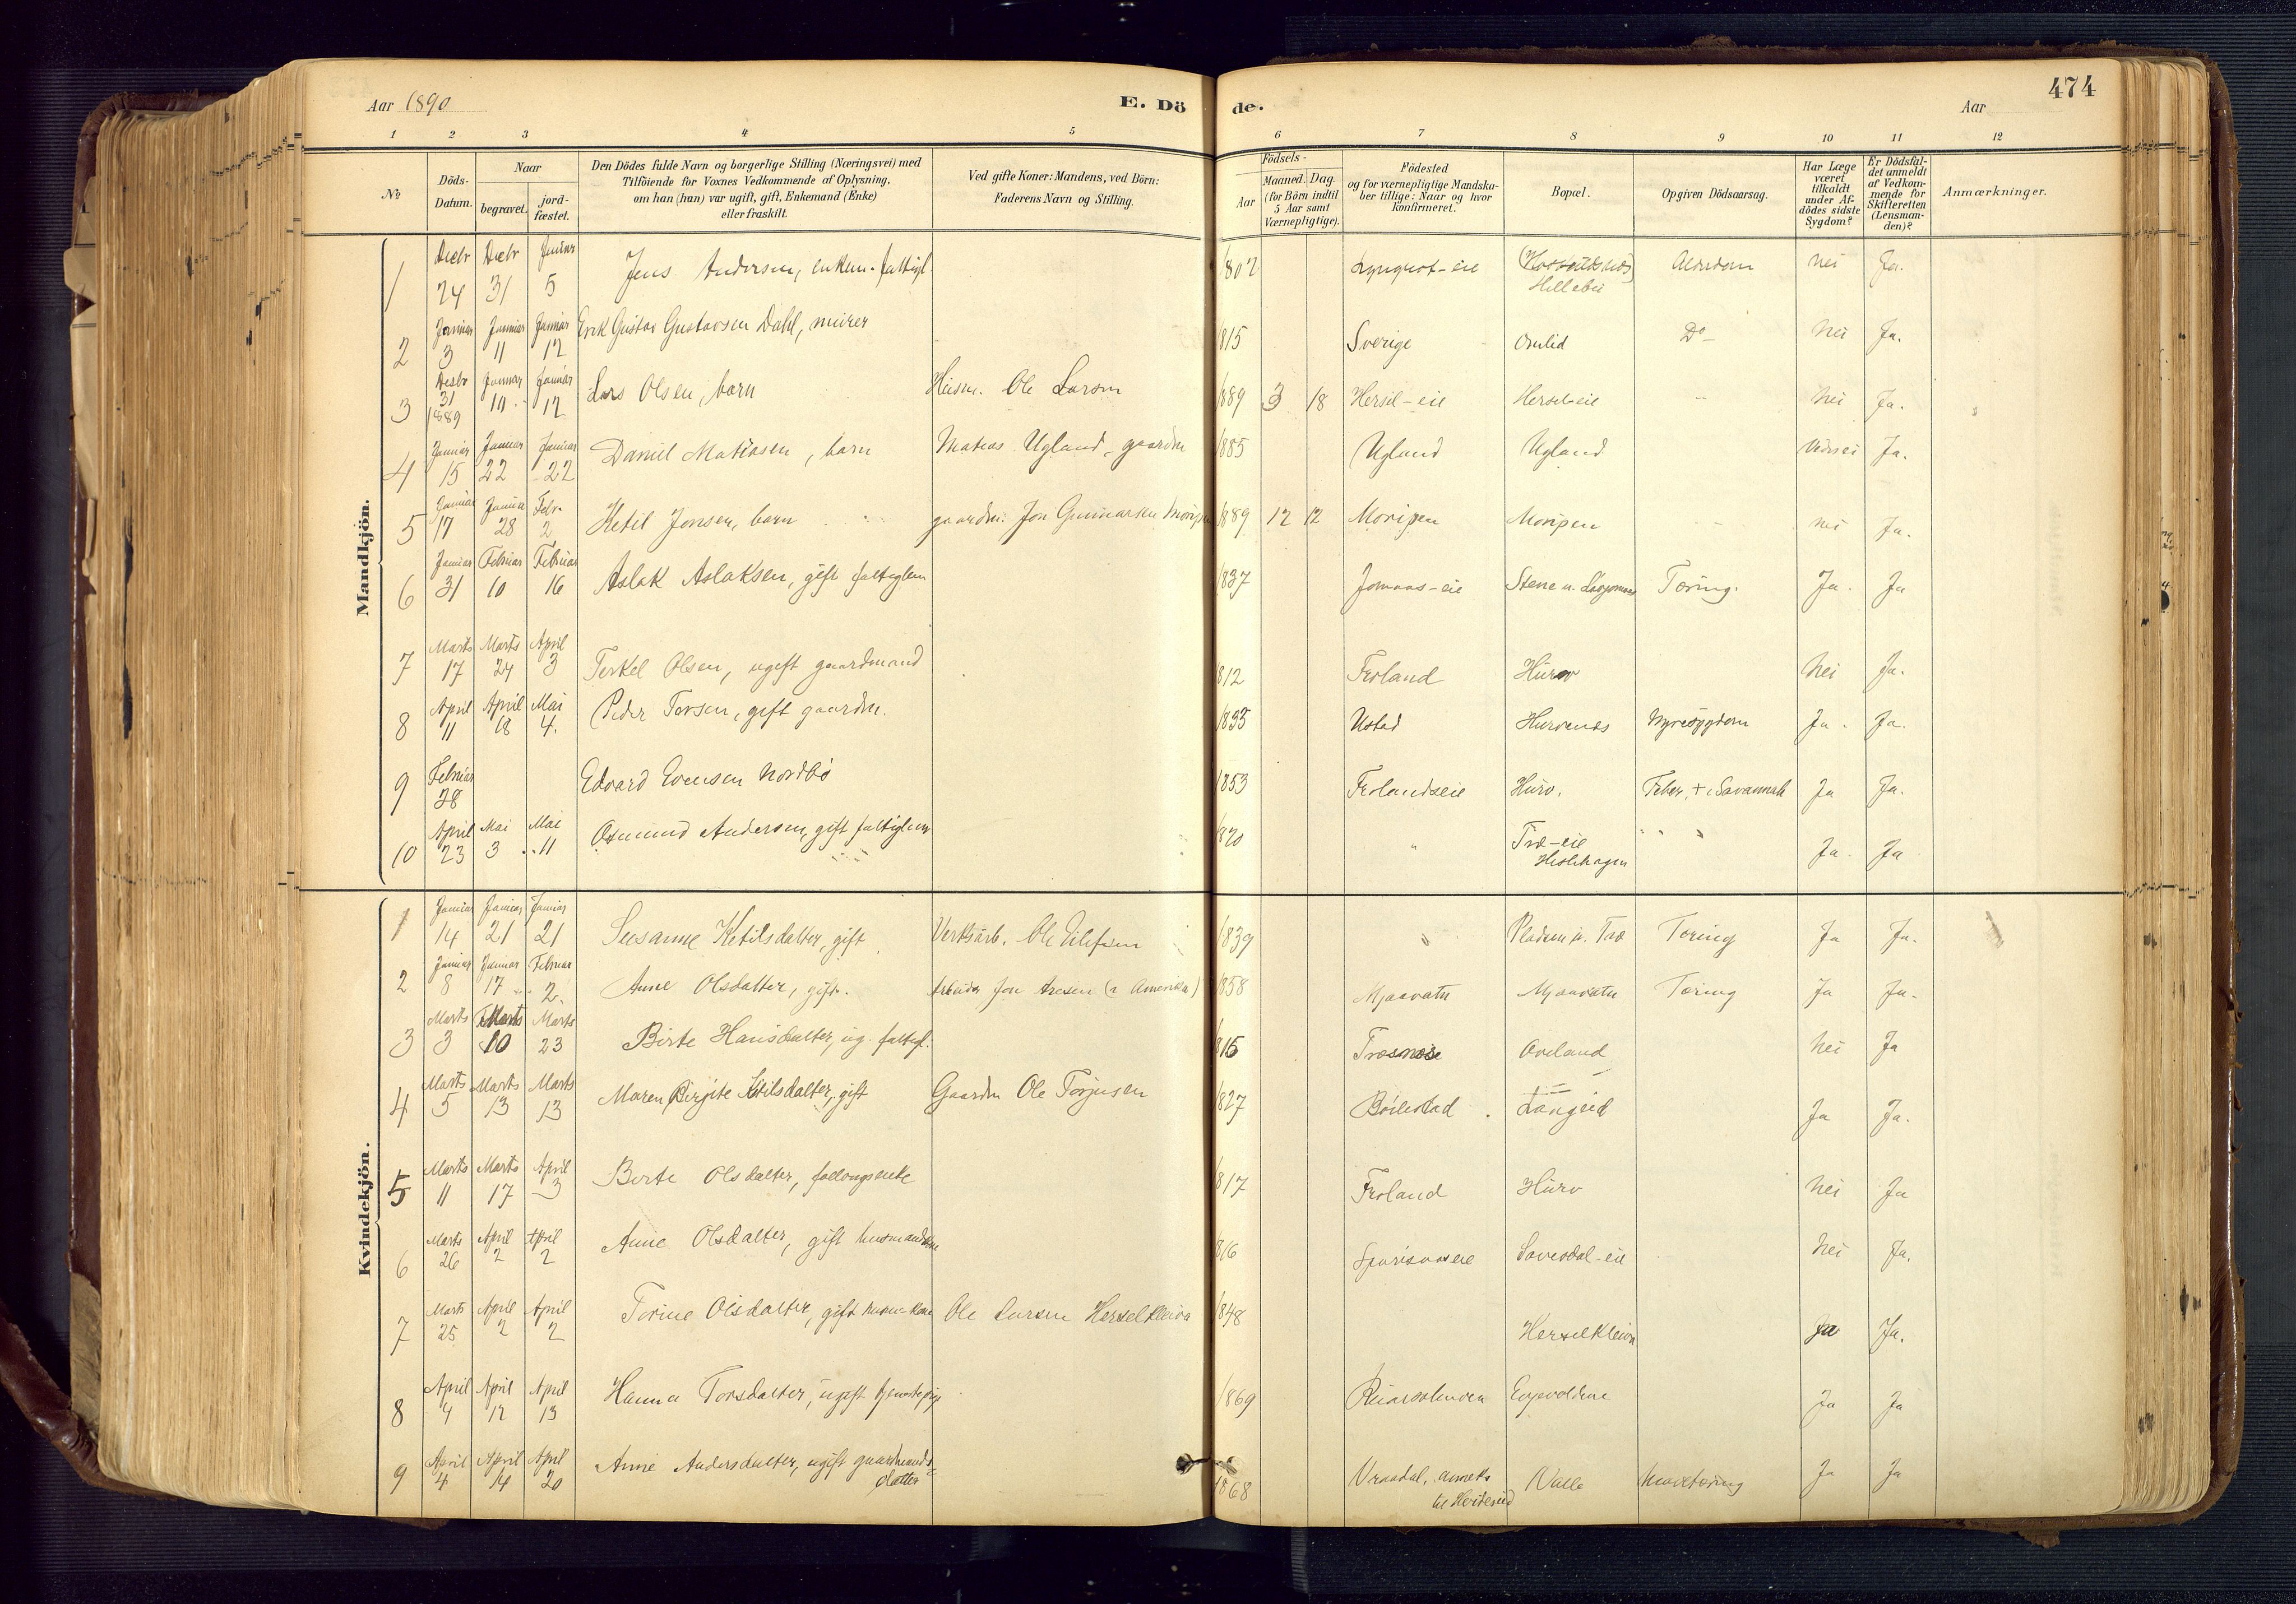 Aar 1890 E. Dö de. Aar 474
1 2 3 4 5 6 7 8 9 10 11 12
No
Döds-Datum.
Naar
begravet.
jordfæstet.
Den Dödes fulde Navn og borgerlige Stilling (Næringsvei) med
Tilföiende for Voxnes Vedkommende af Oplysning,
om han (hun) var ugift, gift, Enkemand (Enke)
eller fraskilt.
Ved gifte Koner: Mandens, ved Börn:
Faderens Navn og Stilling.
Födsels-
Aar
Maaned. Dag
(for Börn indtil
5 Aar samt
Værnepligtige).
Födested
og for værnepligtige Mandska-
ber tillige: Naar og hvor
konfirmeret.
Bopæl.
Opgiven Dödsaarsag.
Har Læge
været
tilkaldt
under Af-
dödes sidste
Sygdom?
Er Dödsfal-
det anmeldt
af Vedkom-
mende for
Skifteretten
(Lensman-
den)?
Anmærkninger.
Mandkjön.
1 Decbr 24 Decbr 31 Januar 5 Jens Andersen, enkem. fattigl. 1807 Hillebu Alderdom Nei Ja.
2 Januar 3 Januar 11 Januar 12 Erik Gustav Gustavsen Dahl, murer 1815 Sverige Osulid Do Nei Ja.
3 Decbr 31 1889 Januar 10 Januar 12 Lars Olsen, barn Husm. Ole Larsen 1889 3 18 Hersel-eie Hersel-eie Nei Ja.
4 Januar 15 Januar 22 Januar 22 Daniel Matiasen, barn Matias Ugland, gaardm 1885 Ugland Ugland Ja.
5 Januar 17 Januar 28 Febr. 2 Ketil Jonsen, barn gaardm. Jon Gunnarsen Moripen 1889 12 12 Moripen Moripen Nei Ja.
6 Januar 31 Februar 10 Februar 16 Aslak Aslaksen, gift fattiglem 1837 Jomaas-eie Stene u. Tæring. Ja. Ja
7 Marts 17 Marts 24 April 3 Terkel Olsen, ugift gaardmand 1812 Froland Hurv Nei Ja.
8 April 11 April 18 Mai 4. Peder Torsen, gift gaardm. 1835 Ustad Hurvenes Nyresygdom Ja. Ja.
9 Februar 28 Edvard Evensen Nordbö 1853 Frolandseie Hurv. Feber, + i Savannah Ja Ja.
10 April 23 Mai 3 Mai 11 Osmund Andersen, gift fattiglem 1820 " Træ-eie Heslehagen " " " Ja. Ja
Kvindekjön.
1 Januar 14 Januar 21 Januar 21 Susanne Ketilsdatter, gift Verksarb. Ole Ellefsen 1839 " Pladsen u. Træ Tæring Ja Ja.
2 Januar 8 Januar 17 Februar 2. Anne Olsdatter, gift. Arbeider Jon Aresen (i Amerika) 1858 Mjaavatn Mjaavatn Tæring Ja Ja.
3 Marts 3 Marts 10 Marts 23 Birte Hansdatter, ug. fattigl. 1816 Træsnæs Oveland Nei Ja
4 Marts 5 Marts 13 Marts 13 Maren Birgite Ketilsdatter, gift Gaardm Ole Torjusen 1827 Böilestad. Langeid Ja Ja.
5 Marts 11 Marts 17 April 3 Birte Olsdatter, 1817 Froland Hurv Nei Ja
6 Marts 26 April 2 April 2 Anne Olsdatter, gift husmandskone 1816 Savesdal-eie Nei Ja.
7 Marts 25 April 2 April 2 Torine Olsdatter, gift husm-kone Ole Larsen Herselkleiva 1848 Herselkleiva Ja Ja.
8 April 4 April 12 April 13 Hanna Torsdatter, ugift tjenestepige 1869 Espevoldene Ja Ja
9 April 4 April 14 April 20 Anne Andersdatter, ugift gaardmands-
datter 1868 Vraadal, anneks
til Hvideseid Valle Mavetæring Ja Ja